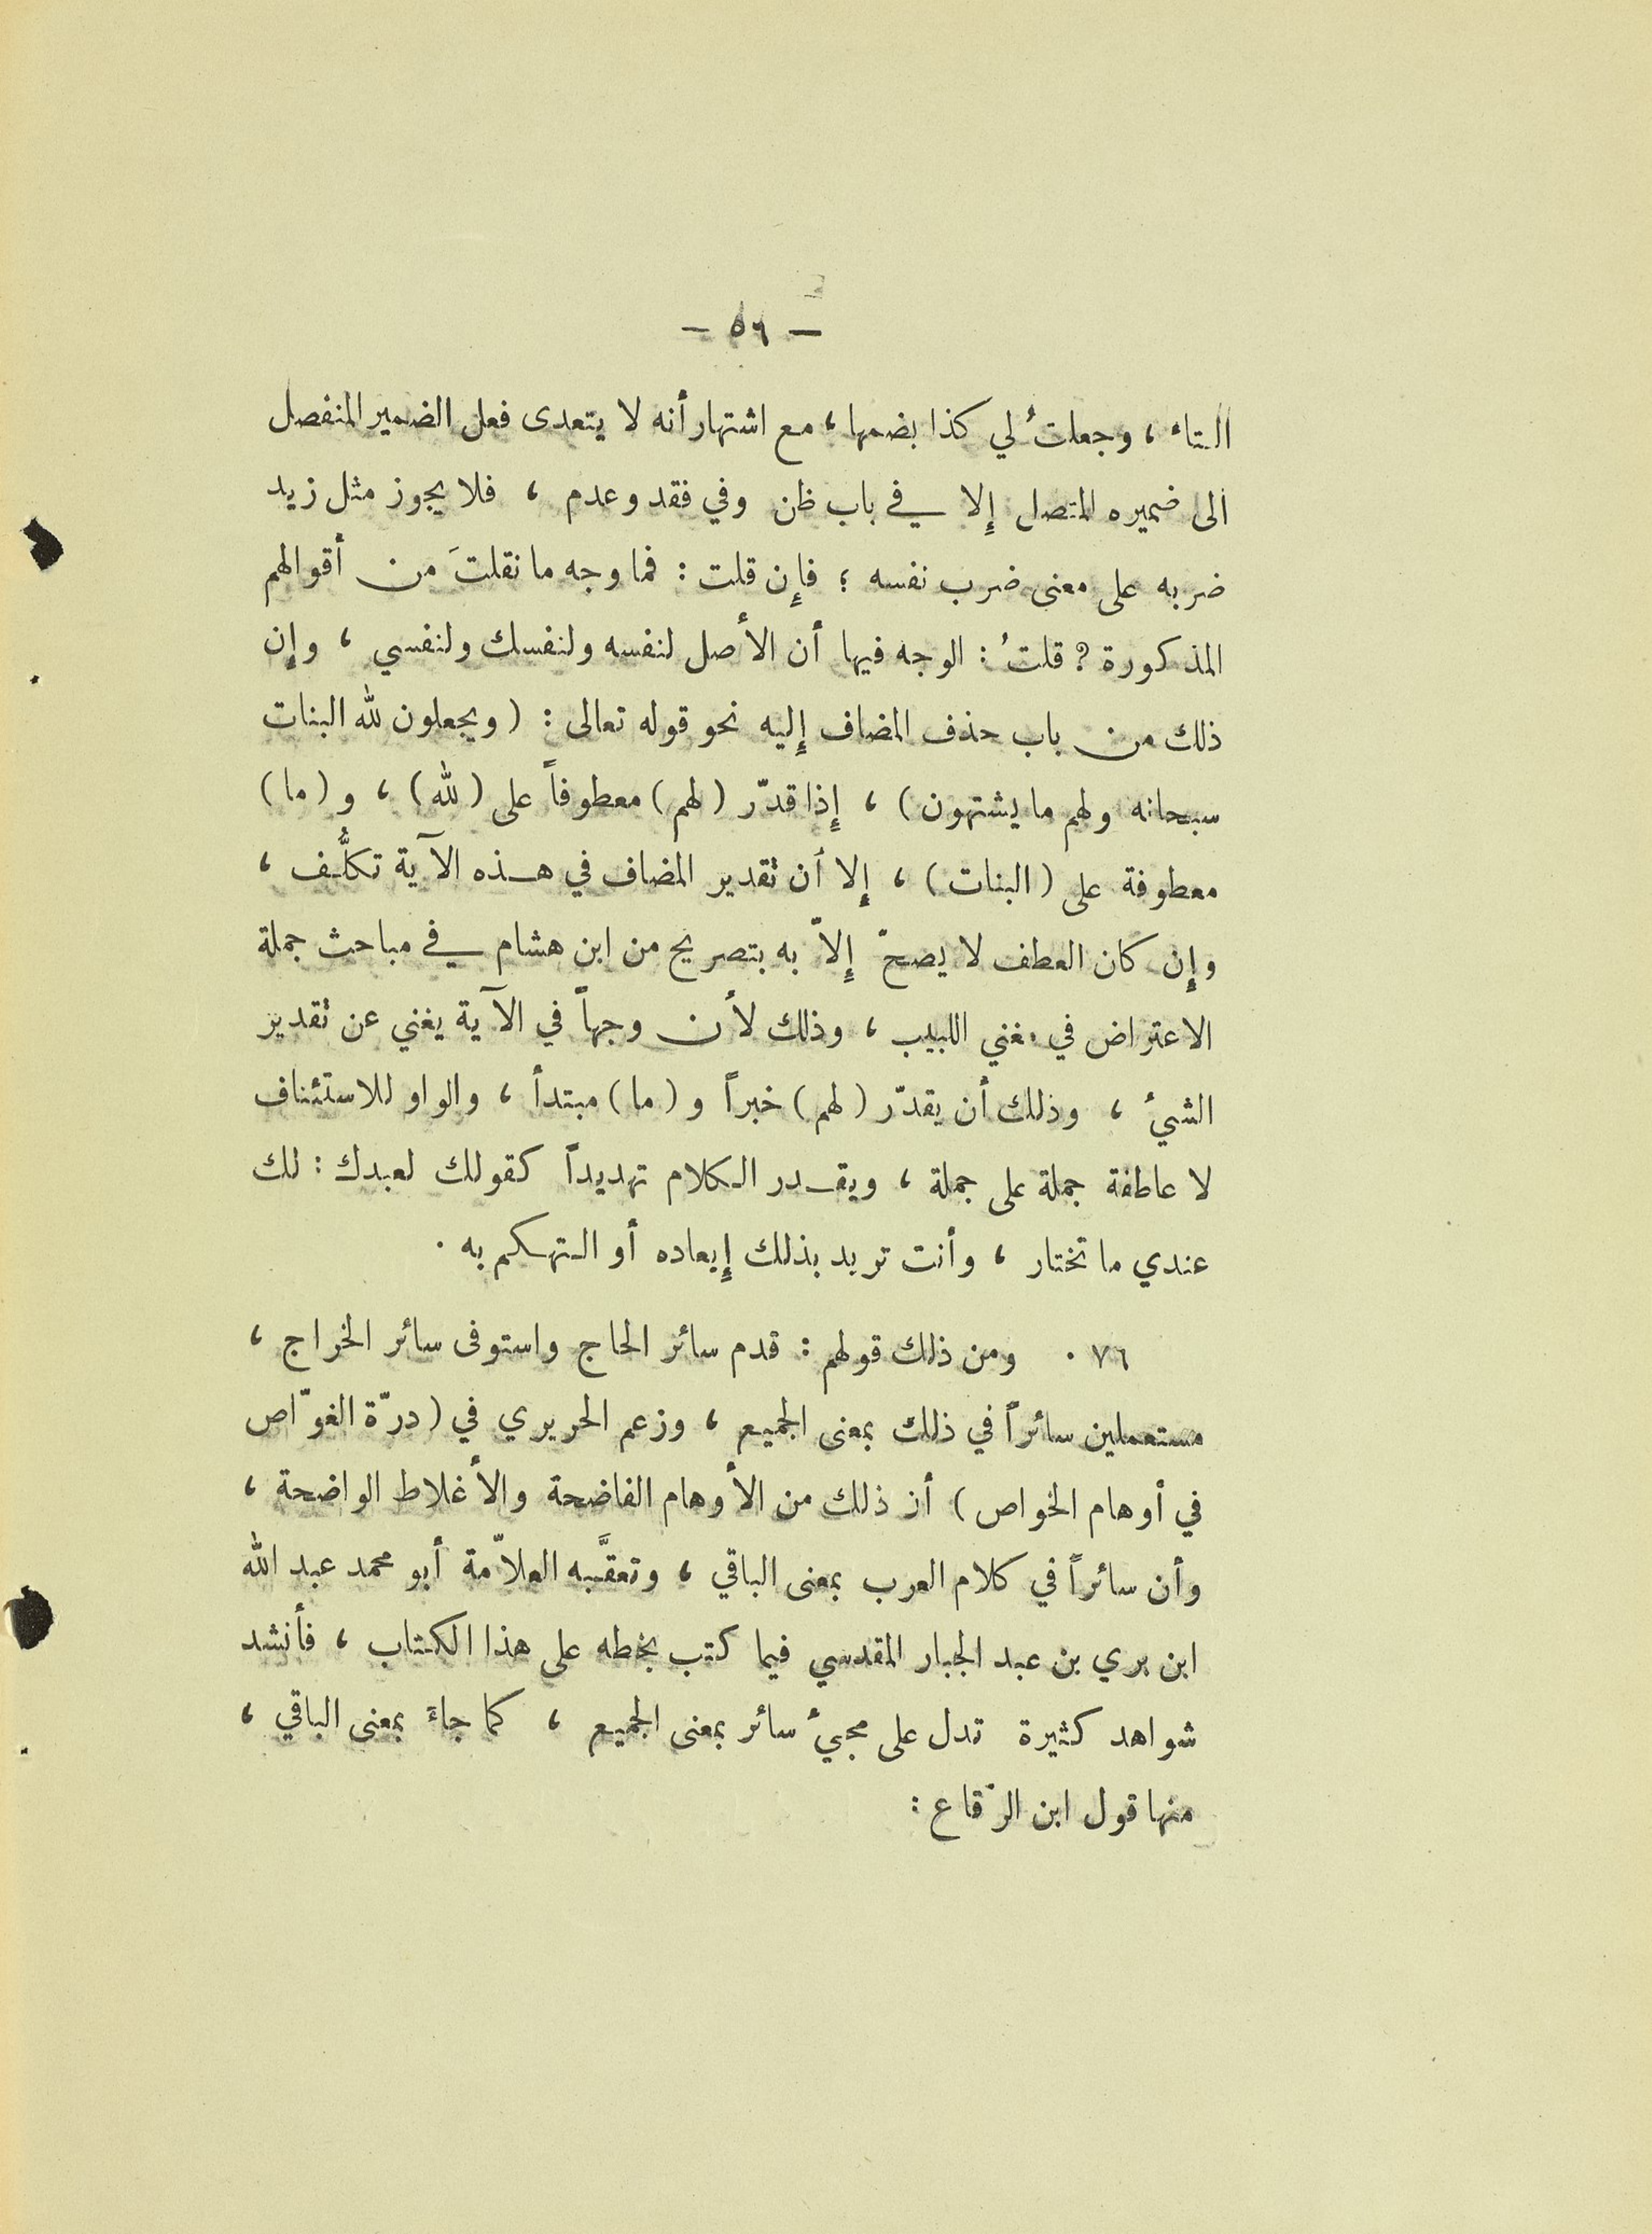 — ٥٦ —
التاء ، وجعلتُ لي كذا بضمها ، مع اشتهار أنه لا يتعدى فعل الضمير المنفصل
الى ضميره المتصل إِلا في باب ظن وفي فقد وعدم ، فلا يجوز مثل زيد
ضربه على معنى ضرب نفسه ؛ فإِن قلت : فما وجه ما نقلتَ من أقوالهم
المذكورة ? قلتُ : الوجه فيها أن الأصل لنفسه ولنفسك ولنفسي ، وإِن
ذلك من باب حذف المضاف إِليه نحو قوله تعالى : ( ويجعلون لله البنات
سبحانه ولهم ما يشتهون ) ، إِذا قدّر ( لهم ) معطوفاً على ( لله ) ، و ( ما )
معطوفة على ( البنات ) ، إِلا أن تقدير المضاف في هذه الآية تكلُّف ،
وإِن كان العطف لا يصحّ إِلاّ به بتصريح من ابن هشام في مباحث جملة
الاعتراض في مغني اللبيب ، وذلك لأن وجهاً في الآية يغني عن تقدير
الشيء ، وذلك أن يقدّر ( لهم ) خبراً و ( ما ) مبتدأ ، والواو للاستئناف
لا عاطفة جملة على جملة ، ويقدر الكلام تهديداً كقولك لعبدك : لك
عندي ما تختار ، وأنت تريد بذلك إِيعاده أو التهكم به .
٧٦ . ومن ذلك قولهم : قدم سائر الحاج واستوفى سائر الخراج ،
مستعملين سائراً في ذلك بمعنى الجميع ، وزعم الحريري في ( درّة الغوّاص
في أوهام الخواص ) أن ذلك من الأوهام الفاضحة والأغلاط الواضحة ،
وأن سائراً في كلام العرب بمعنى الباقي ، وتعقَّبه العلاّمة أبو محمد عبد الله
ابن بري بن عبد الجبار المقدسي فيما كتب بخطه على هذا الكتاب ، فأنشد
شواهد كثيرة تدل على مجيء سائر بمعنى الجميع ، كما جاء بمعنى الباقي ،
منها قول ابن الرّقاع :